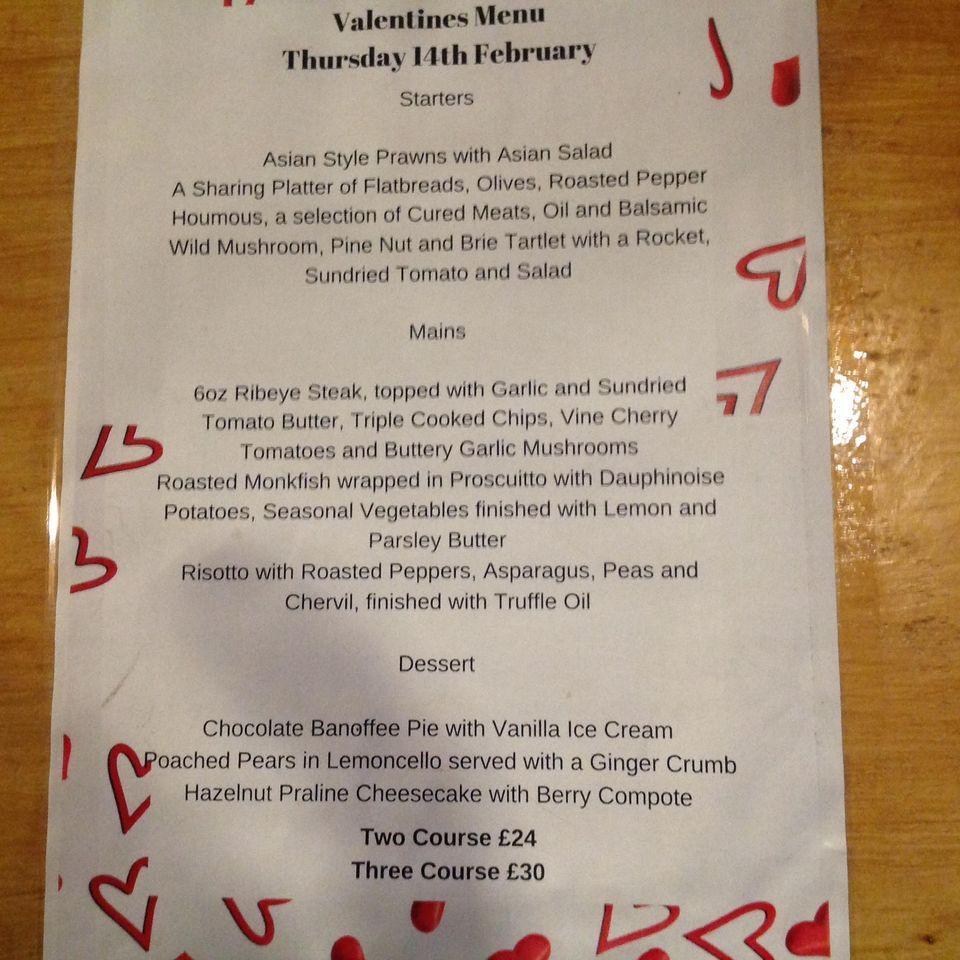 Valentines Menu
Thursday 14th February
Starters
Asian Style Prawns with Asian Salad
A Sharing Platter of Flatbreads, Olives, Roasted Pepper
Houmous, a selection of Cured Meats, Oil and Balsamic
Wild Mushroom, Pine Nut and Brie Tartlet with a Rocket,
Sundried Tomato and Salad
Mains
6oz Ribeye Steak, topped with Garlic and Sundried
Tomato Butter, Triple Cooked Chips, Vine Cherry
Tomatoes and Buttery Garlic Mushrooms
Roasted Monkfish wrapped in Proscuitto with Dauphinoise
Potatoes, Seasonal Vegetables finished with Lemon and
Parsley Butter
Risotto with Roasted Peppers, Asparagus, Peas and
Chervil, finished with Truffle Oil
Dessert
Chocolate Banoffee Pie with Vanilla Ice Cream
Poached Pears in Lemoncello served with a Ginger Crumb
Hazelnut Praline Cheesecake with Berry Compote
Two Course £24
Three Course £30